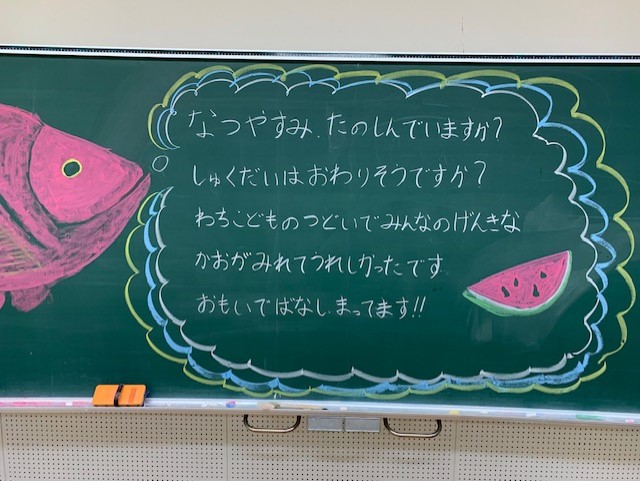 なつやすみ、たのしんでいますか？
しゅくだいはおわりそうですか？
わちこどものつどいでみんなのげんきな
かおがみれてうれしかったです
おもいでばなし、まってます!!